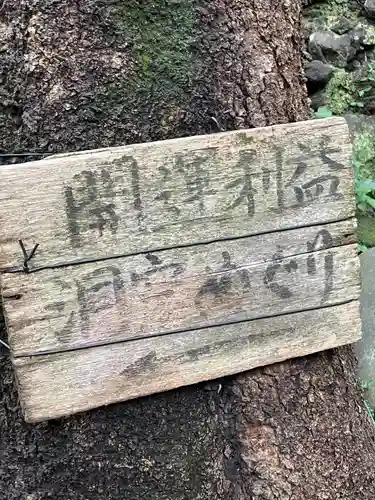 開運利益
洞穴めぐり